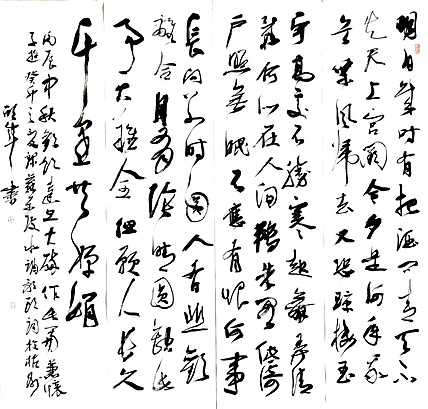 明月幾时有把酒问青天不
知天上宫阙今夕是何年我
欲乘风归去又恐琼楼玉
宇高处不胜寒起舞弄清
影何似在人间转朱阁低绮
户照无眠不应有恨何事
长向别时圆人有悲欢
离合月有阴晴圆缺此
事古难全但愿人长久
千里共婵娟
丙辰中秋欢饮达旦大醉作此篇兼怀
子由 苏东坡水调歌头词於
书